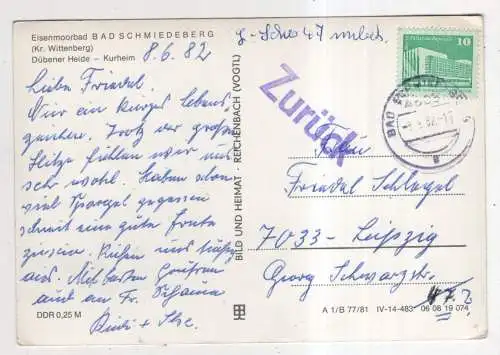 Eisenmoorbad BAD SCHMIEDEBERG
(Kr. Wittenberg)
Dübener Heide – Kurheim
8.6.82
Liebe Friedel.
Nur ein kurzes Lebens-
zeichen. Trotz der großen
Hitze fühlen wir uns
sehr wohl. Haben schon
viel Spargel gegessen
scheint eine gute Ernte
zu sein.
aus. Mit besten Grüßen
auch an Fr.
+ Ilse.
DDR 0,25 M
BILD UND HEIMAT · REICHENBACH (VOGTL)
47
10
Zurück
BAD
Frau
Friedel Schlegel
7033 - Leipzig
Georg Schwarzstr.
47?
A 1/B 77/81 IV-14-483 06 08 19 074